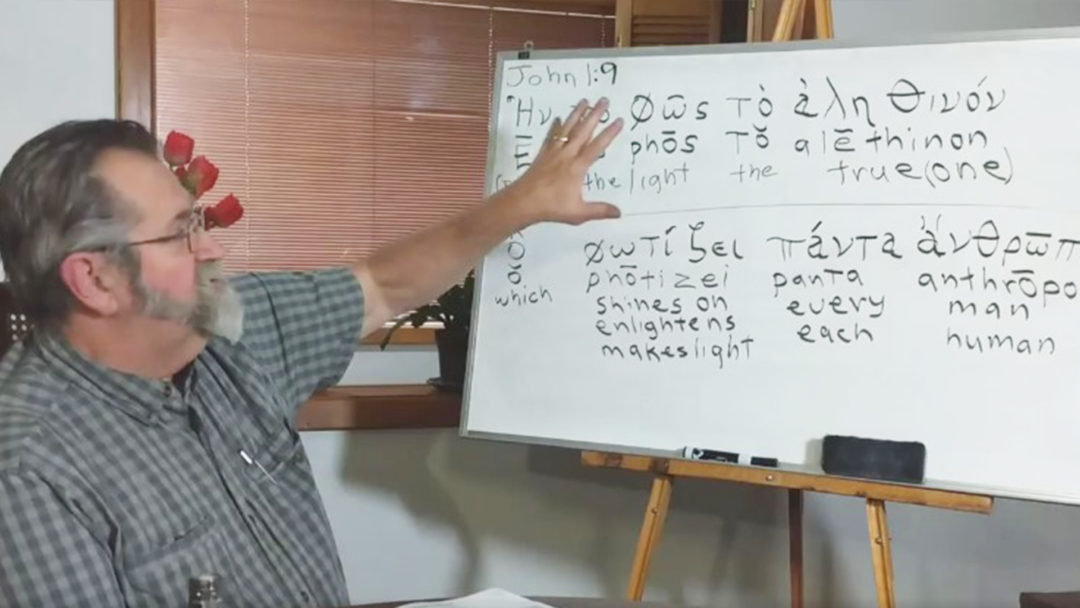 John 1:9
Ἠν φῶς τὸ ἀληθινόν
phōs Tŏ alēthinon
the light the true(one)
φωτίζει πάντα ἄνθρωπ
ŏ phōtizei panta anthrōpo
which shines on every man
enlightens each human
makes light